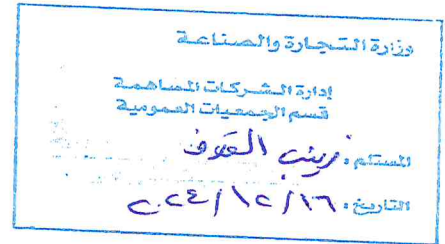 وزارة التجارة والصناعة
إدارة الشركات المساهمة
قسم الجمعيات العمومية
المستلم : زينب العلاف
التاريخ : ٢٠٢٤/١٢/١٦